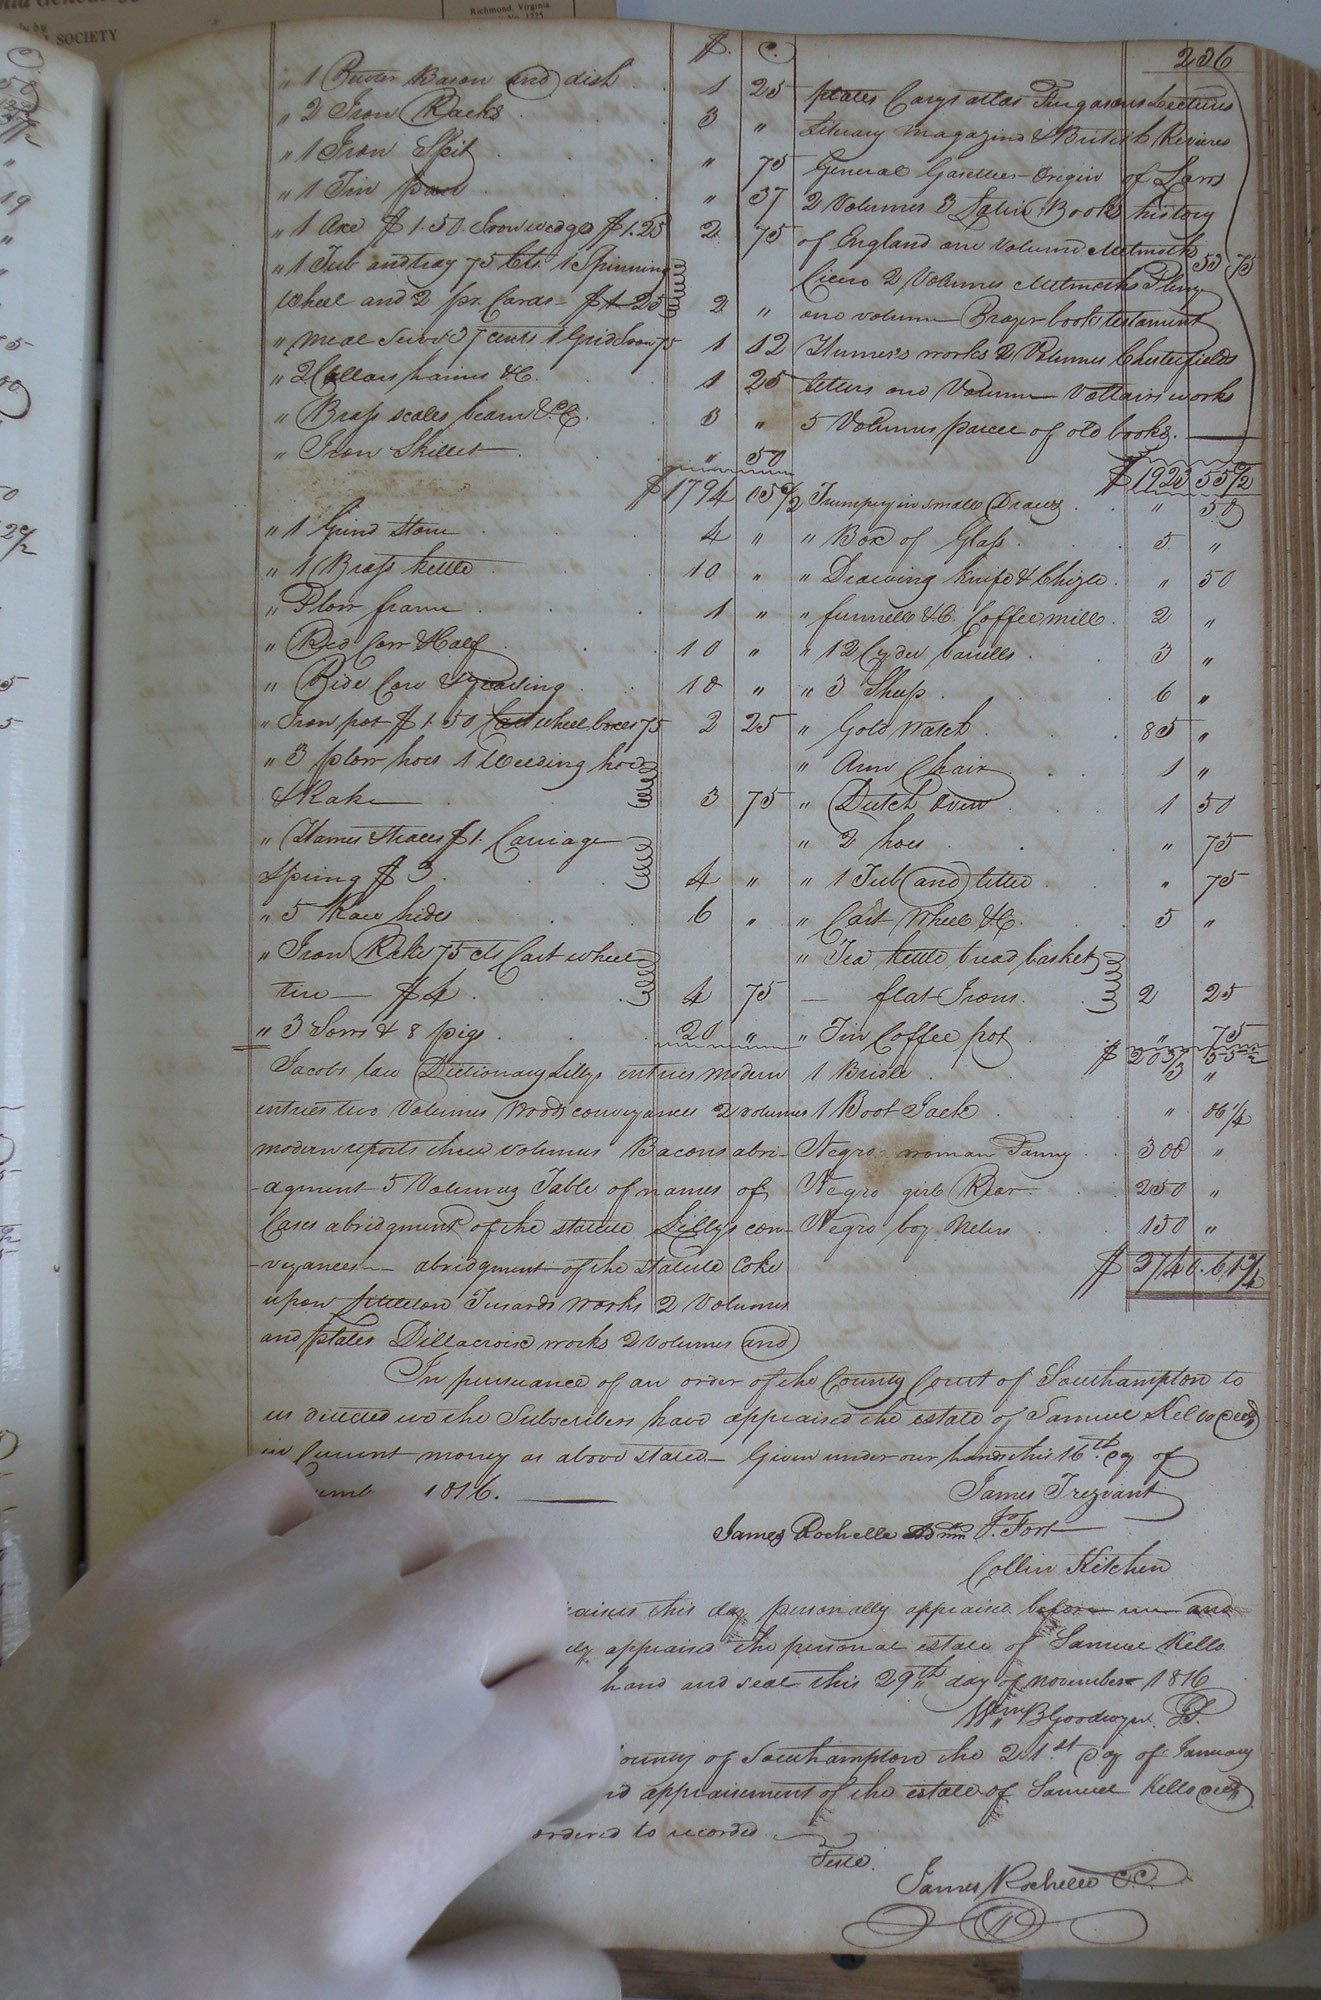 Richmond, Virginia
SOCIETY
236
$. C.
" 1 Pewter Bason and dish 1 25
" 2 Iron Racks 3 "
" 1 Iron Spit " 75
" 1 Tin pan " 37
" 1 Axe $1.50 Iron wedge $1.25 2 75
" 1 Tub and tray 75 Cts. 1 Spinning
Wheel and 2 pr. Cards - $1.25 2 "
" Meal Sieve 37 cents 1 Grid Iron 75 1 12
" 2 Collars hames &C. 1 25
" Brass scales beam &C. 3 "
" Iron Skillet " 50
$1794 05 1/2
" 1 Grind stone 4 "
" 1 Brass kettle 10 "
" Plow frame 1 "
" Red Cow & Calf 10 "
" Pide Cow & Yearling 10 "
" Iron pot $1.50 Cart wheel boxes 75 2 25
" 3 plow hoes 1 Weeding hoe
& Rake 3 75
" Hames traces $1. Carriage
Spring $3. 4 "
" 5 Raw hides 6 "
" Iron Rake 75 cts Cart wheel
tire - $4. 4 75
" 3 Sows & 8 pigs 20 "
Jacobs law Dictionary Lillys entries modern
entries two Volumes Woods conveyances 2 volumes
modern reports three volumes Bacons abri-
-agment 5 Volumes Table of names of
Cases abridgment of the statute Lillys con-
-veyances - abridgment of the statute Coke
upon works 2 Volumes
and plates works 2 volumes and
plates Carys atlas Furgasons Lectures
Literary Magazine & British Reviews
General Gasetteer - Origin of Laws
2 Volumes 3 Latin Books history
of England one volume Melmoths 53 75
Cicero 2 Volumes Melmoths Pliny
one volume Prayer book testament
Humes works 2 Volumes Chesterfields
letters one Volume Voltairs works
5 Volumes parcel of old books.
$1923 55 1/2
Trumpery in small Draws " 50
" Box of Glass 5 "
" Drawing Knife & Chizle " 50
" funnell &C. Coffee mill 2 "
" 12 Cyder barrells 3 "
" 3 Sheep 6 "
" Gold Watch 85 "
" Arm Chair 1 "
" Dutch Oven 1 50
" 2 hoes " 75
" 1 Tub and " 75
" Cart Wheel &C. 5 "
" Tea kettle bread basket
- flat Irons 2 25
" Tin Coffee pot " 75
$ 2037 55 1/2
1 Bridle 3 "
1 Boot Jack " 06 1/4
Negro woman Fanny 300 "
Negro girl 250 "
Negro boy 150 "
$ 2740.61 3/4
In pursuance of an order of the County Court of Southampton to
us directed we the Subscribers have appraised the estate of Samuel Kello decd
in Current money as above stated - Given under our hands this 16th. day of
1816.
James Trezvant
James Rochelle Admr J. Fort
Collin Kitchen
this day personally appraised before me and
appraised the personal estate of Samuel Kello
hand and seal this 29th day of november 1816
Wm B Goodwyn. J.P.
ounty of Southampton the 21st day of January
nd appraisement of the estate of Samuel Kello decd
ordered to recorded
Teste.
James Rochelle C.C.